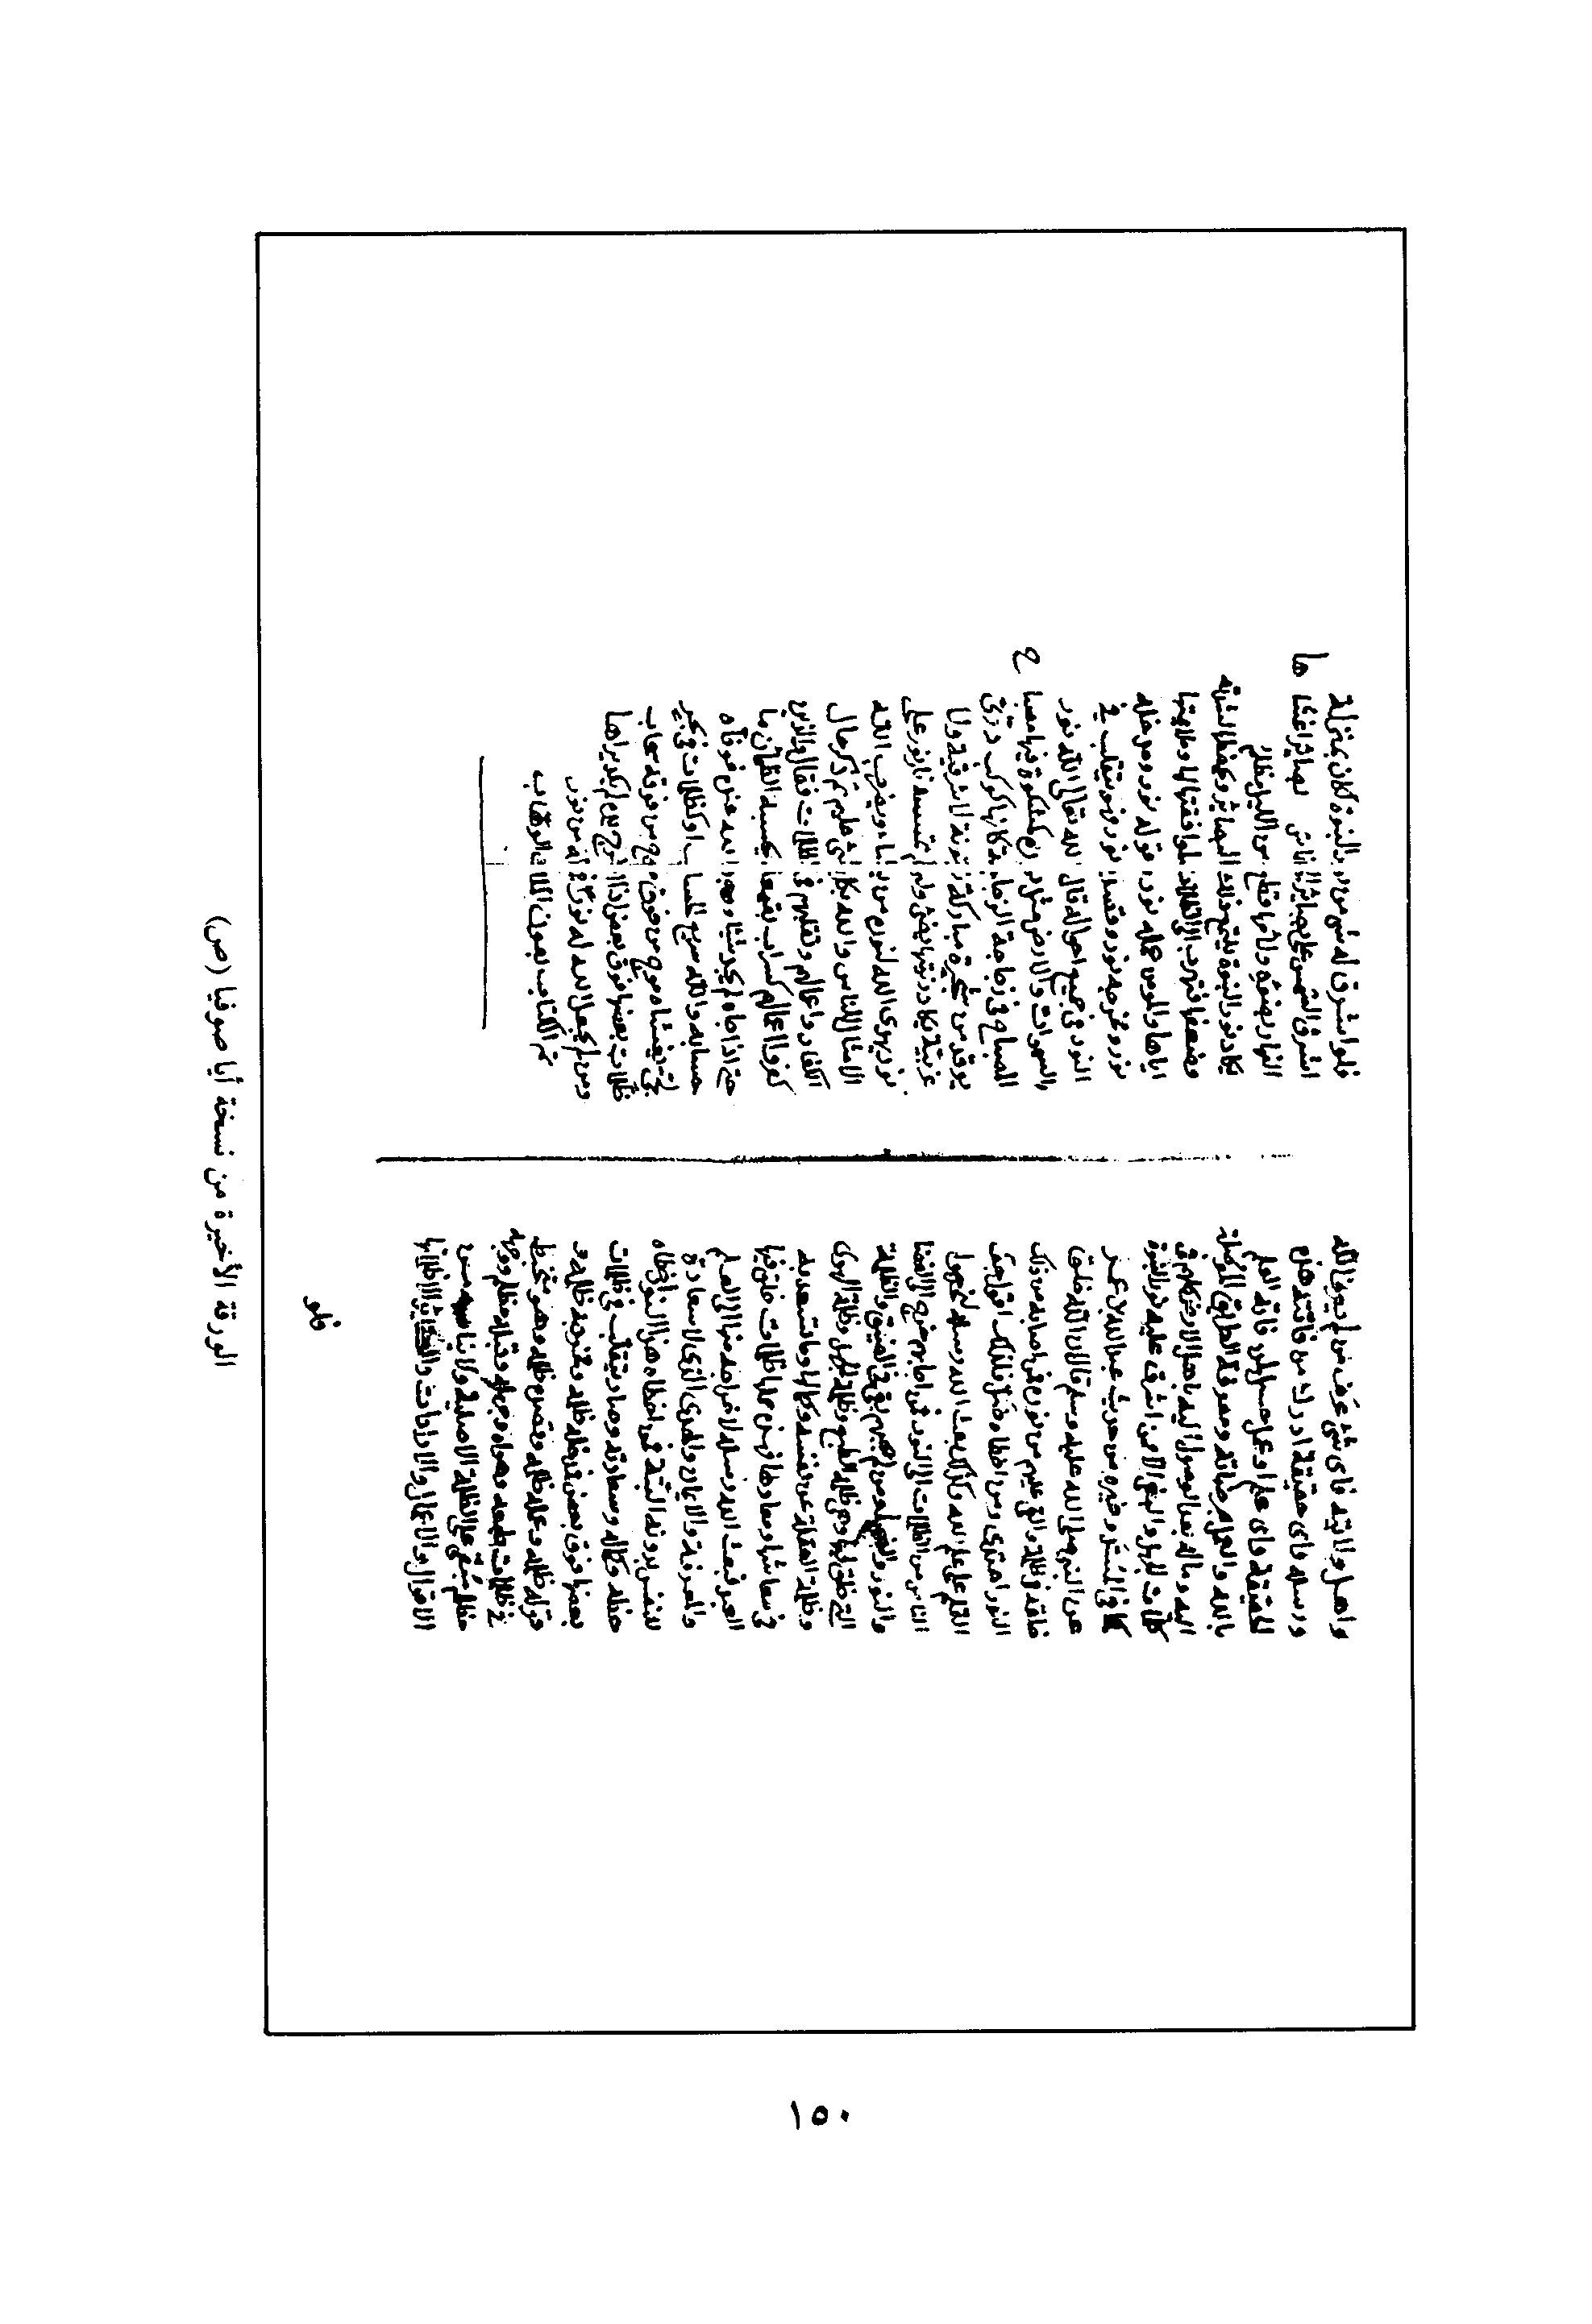 واهله ولابد فاي شئ عرف من لم يعرف الله
ورسله واي حقيقة ادرك من فاتته هذه
الحقيقة واي علم او عمل حصل لمن فاته العلم
بالله والعمل بمرضاته ومعرفة الطريق الموصلة
اليه وماله بعد الوصول اليه باهل الارض كلهم في
ظلمات الجهل والبغي الا من اشرق عليه نور النبوة
كما في المسند وغيره من حديث عبدالله بن عمر
عن النبي صلى الله عليه وسلم قال ان الله خلق
خلقه في ظلمة والقى عليهم من نوره فمن اصابه من ذلك
النور اهتدى ومن اخطاه ضل فلذلك اقول جف
القلم على علم الله ولذلك بعث الله رسله ليخرجوا
الناس من الظلمات الى النور فمن اجابهم خرج الى الفضا
والنور والضيا ومن لم يجبهم بقي في الضيق والظلمة
التي خلق فيها وهي ظلمة الطبع وظلمة الجهل وظلمة الهوى
وظلمة الغفلة عن نفسه وكمالها وما تسعد به
في معاشها ومعادها فهذه كلها ظلمات خلق فيها
العبد فبعث الله رسله لاخراجه منها الى العلم
والمعرفة والايمان والهدى الذي لا سعادة
للنفس بدونه البتة فمن اخطاه هذا النور اخطاه
حظه وكماله وسعادته وصار يتقلب في ظلمات
بعضها فوق بعض فمدخله ظلمة ومخرجه ظلمة و
قوله ظلمة وعمله ظلمة وقصده ظلمة وهو متخبط
في ظلمات طبعه وهواه وجهله وقلبه مظلم ووجهه
مظلم مبقى على الظلمة الاصلية ولا يناسبه من
الاقوال والاعمال والارادات والعقائد الا ظلماتها
فلو
فلو اشرق له شئ من نور النبوة لكان بمنزلة
اشراق الشمس على بصائر الخفاش
بصائر اغشاها
النهار بضوئه ولائمها قطع من الليل مظلم
يكاد نور النبوة يعمي تلك البصائر ويخطفها لشدته
وضعفها فتهرب الى الظلمات لموافقتها لها وملايمتها
اياها والمومن عمله نور وقوله نور ومدخله
نور ومخرجه نور وقصده نور فهو يتقلب في
النور في جميع احواله قال الله تعالى الله نور
السموات والارض مثل نوره كمشكوة فيها مصباح
المصباح في زجاجة الزجاجة كانها كوكب درّي
يوقد من شجرة مباركة زيتونة لا شرقية ولا
غربية يكاد زيتها يضئ ولو لم تمسسه نار نور على
نور يهدى الله لنوره من يشاء ويضرب الله
الامثال للناس والله بكل شئ عليم ثم ذكر حال
الكفار واعمالهم وتقلبهم في الظلمات فقال والذين
كفروا اعمالهم كسراب بقيعة يحسبه الظمآن ماء
حتى اذا جاءه لم يجده شيئا ووجد الله عنده فوفاه
حسابه والله سريع الحساب او كظلمات في بحر
لجي يغشاه موج من فوقه موج من فوقه سحاب
ظلمات بعضها فوق بعض اذا اخرج يده لم يكد يراها
ومن لم يجعل الله له نورا فما له من نور
تم الكتاب بعون الملك الوهاب
الورقة الأخيرة من نسخة أيا صوفيا (ص)
١٥٠